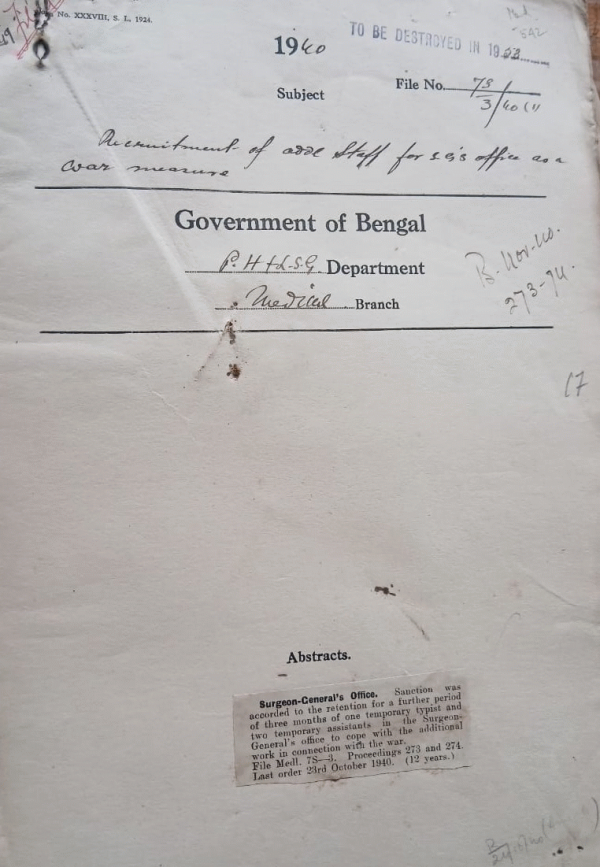 No. XXXVIII, S. L., 1924.
TO BE DESTROYED IN 19
1940
Subject
File No. 7S/3/40 (1)
Recruitment of addl Staff for S G's office as a
war measure
Government of Bengal
P. H & L. S. G. Department
Medical Branch
B. Nov. 40.
273-74.
17
Abstracts.
Surgeon-General's Office. Sanction was
accorded to the retention for a further period
of three months of one temporary typist and
two temporary assistants in the Surgeon-
General's office to cope with the additional
work in connection with the war.
File Medl. 7S—3. Proceedings 273 and 274.
Last order 23rd October 1940. (12 years.)